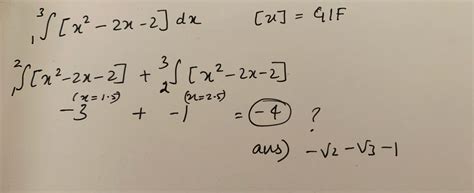 ₁³∫[x²-2x-2] dx [x] = GIF
₁²∫[x²-2x-2] + ₂³∫[x²-2x-2]
(x=1.5) (x=2.5)
-3 + -1 = -4 ?
ans) -√2-√3-1